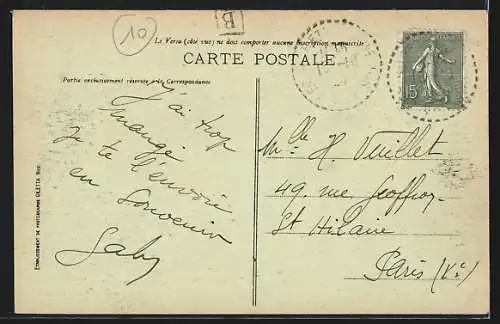 10
B
Le Verso (côté vue) ne doit comporter aucune inscription manuscrite
CARTE POSTALE
Partie exclusivement réservée à la Correspondance
J'ai trop
mangé
je te l'envoie
en souvenir
Gaby
15
Mlle H. Vuillet
49, rue Geoffroy
St Hilaire
Paris (Ve)
ETABLISSEMENT DE PHOTOGRAPHIE GILETTA NICE